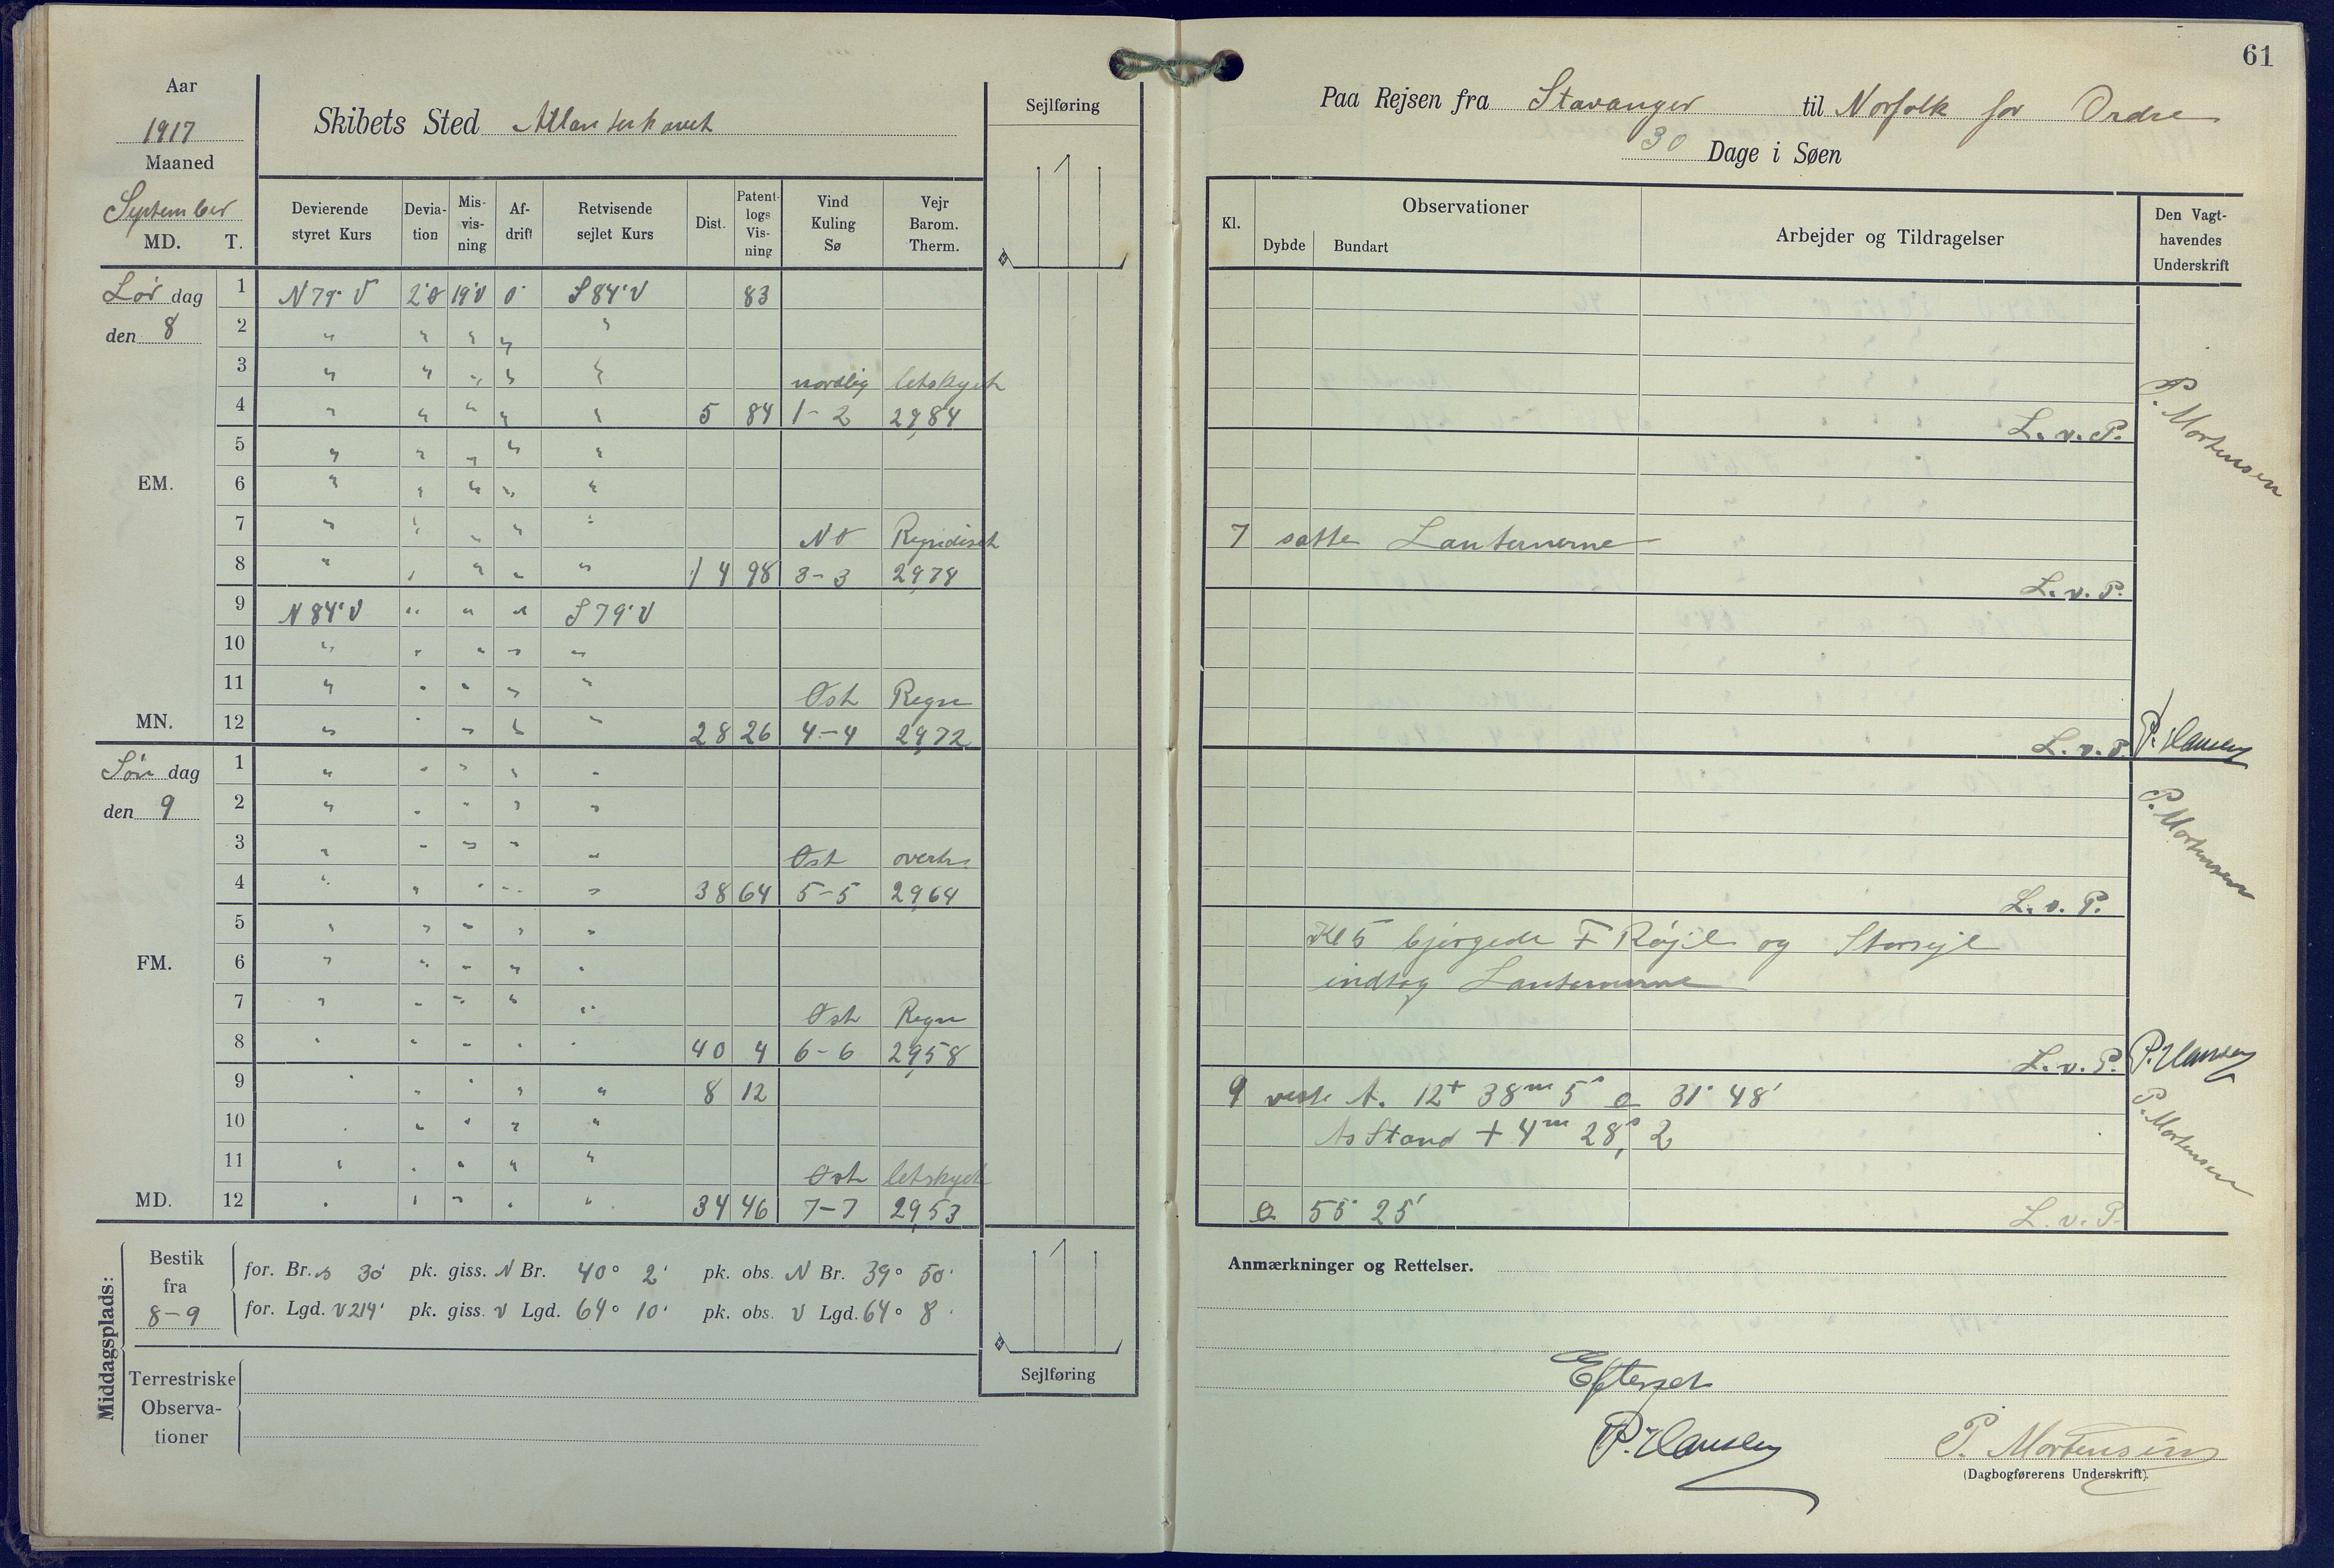 61
Aar
1917
Maaned
September
MD. T.
Skibets Sted Atlanterhavet
Sejlføring
Devierende styret Kurs
Devia-tion
Mis-vis-ning
Af-drift
Retvisende sejlet Kurs
Dist.
Patent-logs Vis-ning
Vind Kuling Sø
Vejr Barom. Therm.
Lør dag
den 8
1 N 79° V 2°Ø 19°V 0° S 84° V 83
2 " " " " "
3 " " " " " nordlig letskyet
4 " " " " " 5 84 1-2 29,84
5 " " " " "
EM. 6 " " " " "
7 " " " " " NØ Regndiset
8 " " " " " 14 98 3-3 29,78
9 N 84° V " " " S 79° V
10 " " " " "
11 " " " " " Øst Regn
MN. 12 " " " " " 28 26 4-4 29,72
Søn dag
den 9
1 " " " " "
2 " " " " "
3 " " " " " Øst overtr.
4 " " " " " 38 64 5-5 29,64
5 " " " " "
FM. 6 " " " " "
7 " " " " " Øst Regn
8 " " " " " 40 4 6-6 29,58
9 " " " " " 8 12
10 " " " " "
11 " " " " " Øst letskyet
MD. 12 " " " " " 34 46 7-7 29,53
Middagsplads:
Bestik
fra
8-9
for. Br. S 30' pk. giss. N Br. 40° 2' pk. obs. N Br. 39° 50'
for. Lgd. V 214' pk. giss. V Lgd. 64° 10' pk. obs. V Lgd. 64° 8'
Terrestriske
Observa-
tioner
Sejlføring
Paa Rejsen fra Stavanger til Norfolk for Ordre
30 Dage i Søen
Kl.
Observationer
Dybde Bundart
Arbejder og Tildragelser
Den Vagt-
havendes
Underskrift
L. v. P.
P. Mortensen
7 satte Lanternerne
L. v. P.
L. v. P. P. Hansen
P. Mortensen
L. v. P.
Kl 5 bjergede F Røjl og Storsejl
indtog Lanternerne
L. v. P. P. Hansen
9 12 38m 5s 31° 48'
Stand + 4m 28s,2
P. Mortensen
55° 25'
L. v. P.
Anmærkninger og Rettelser.
Efterset
P. Hansen
P. Mortensen
(Dagbogførerens Underskrift).